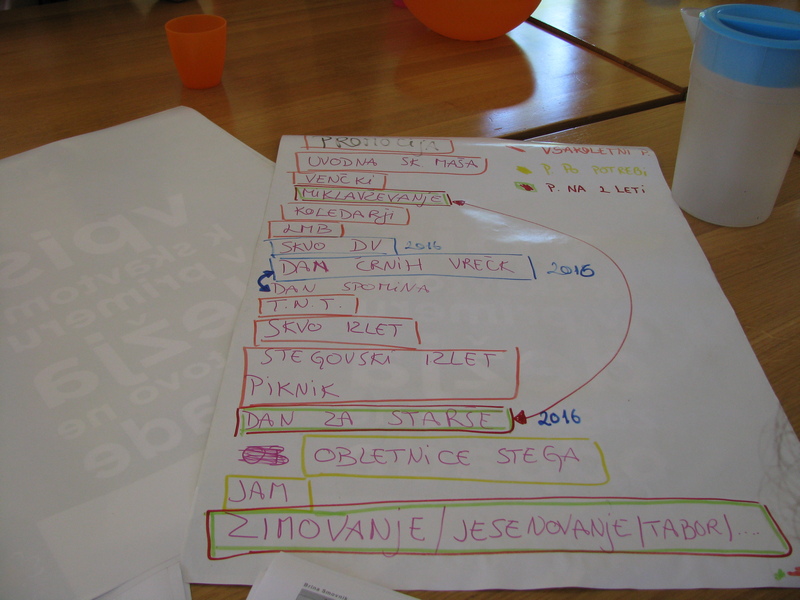 PROMOCIJA
VSAKOLETNI P.
UVODNA SK MAŠA
P. PO POTREBI
VENČKI
P. NA 2 LETI
MIKLAVŽEVANJE
KOLEDARJI
LMB
SKVO DV 2016
DAN ČRNIH VREČK 2016
DAN SPOMINA
T.N.T.
SKVO IZLET
STEGOVSKI IZLET
PIKNIK
DAN ZA STARŠE 2016
OBLETNICE STEGA
JAM
ZIMOVANJE/JESENOVANJE/TABOR/....